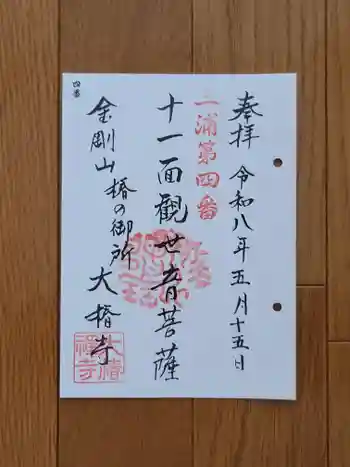 奉拝 令和八年五月十五日
三浦第四番
十一面観世音菩薩
金剛山 椿の御所 大椿寺
四番
大椿禅寺